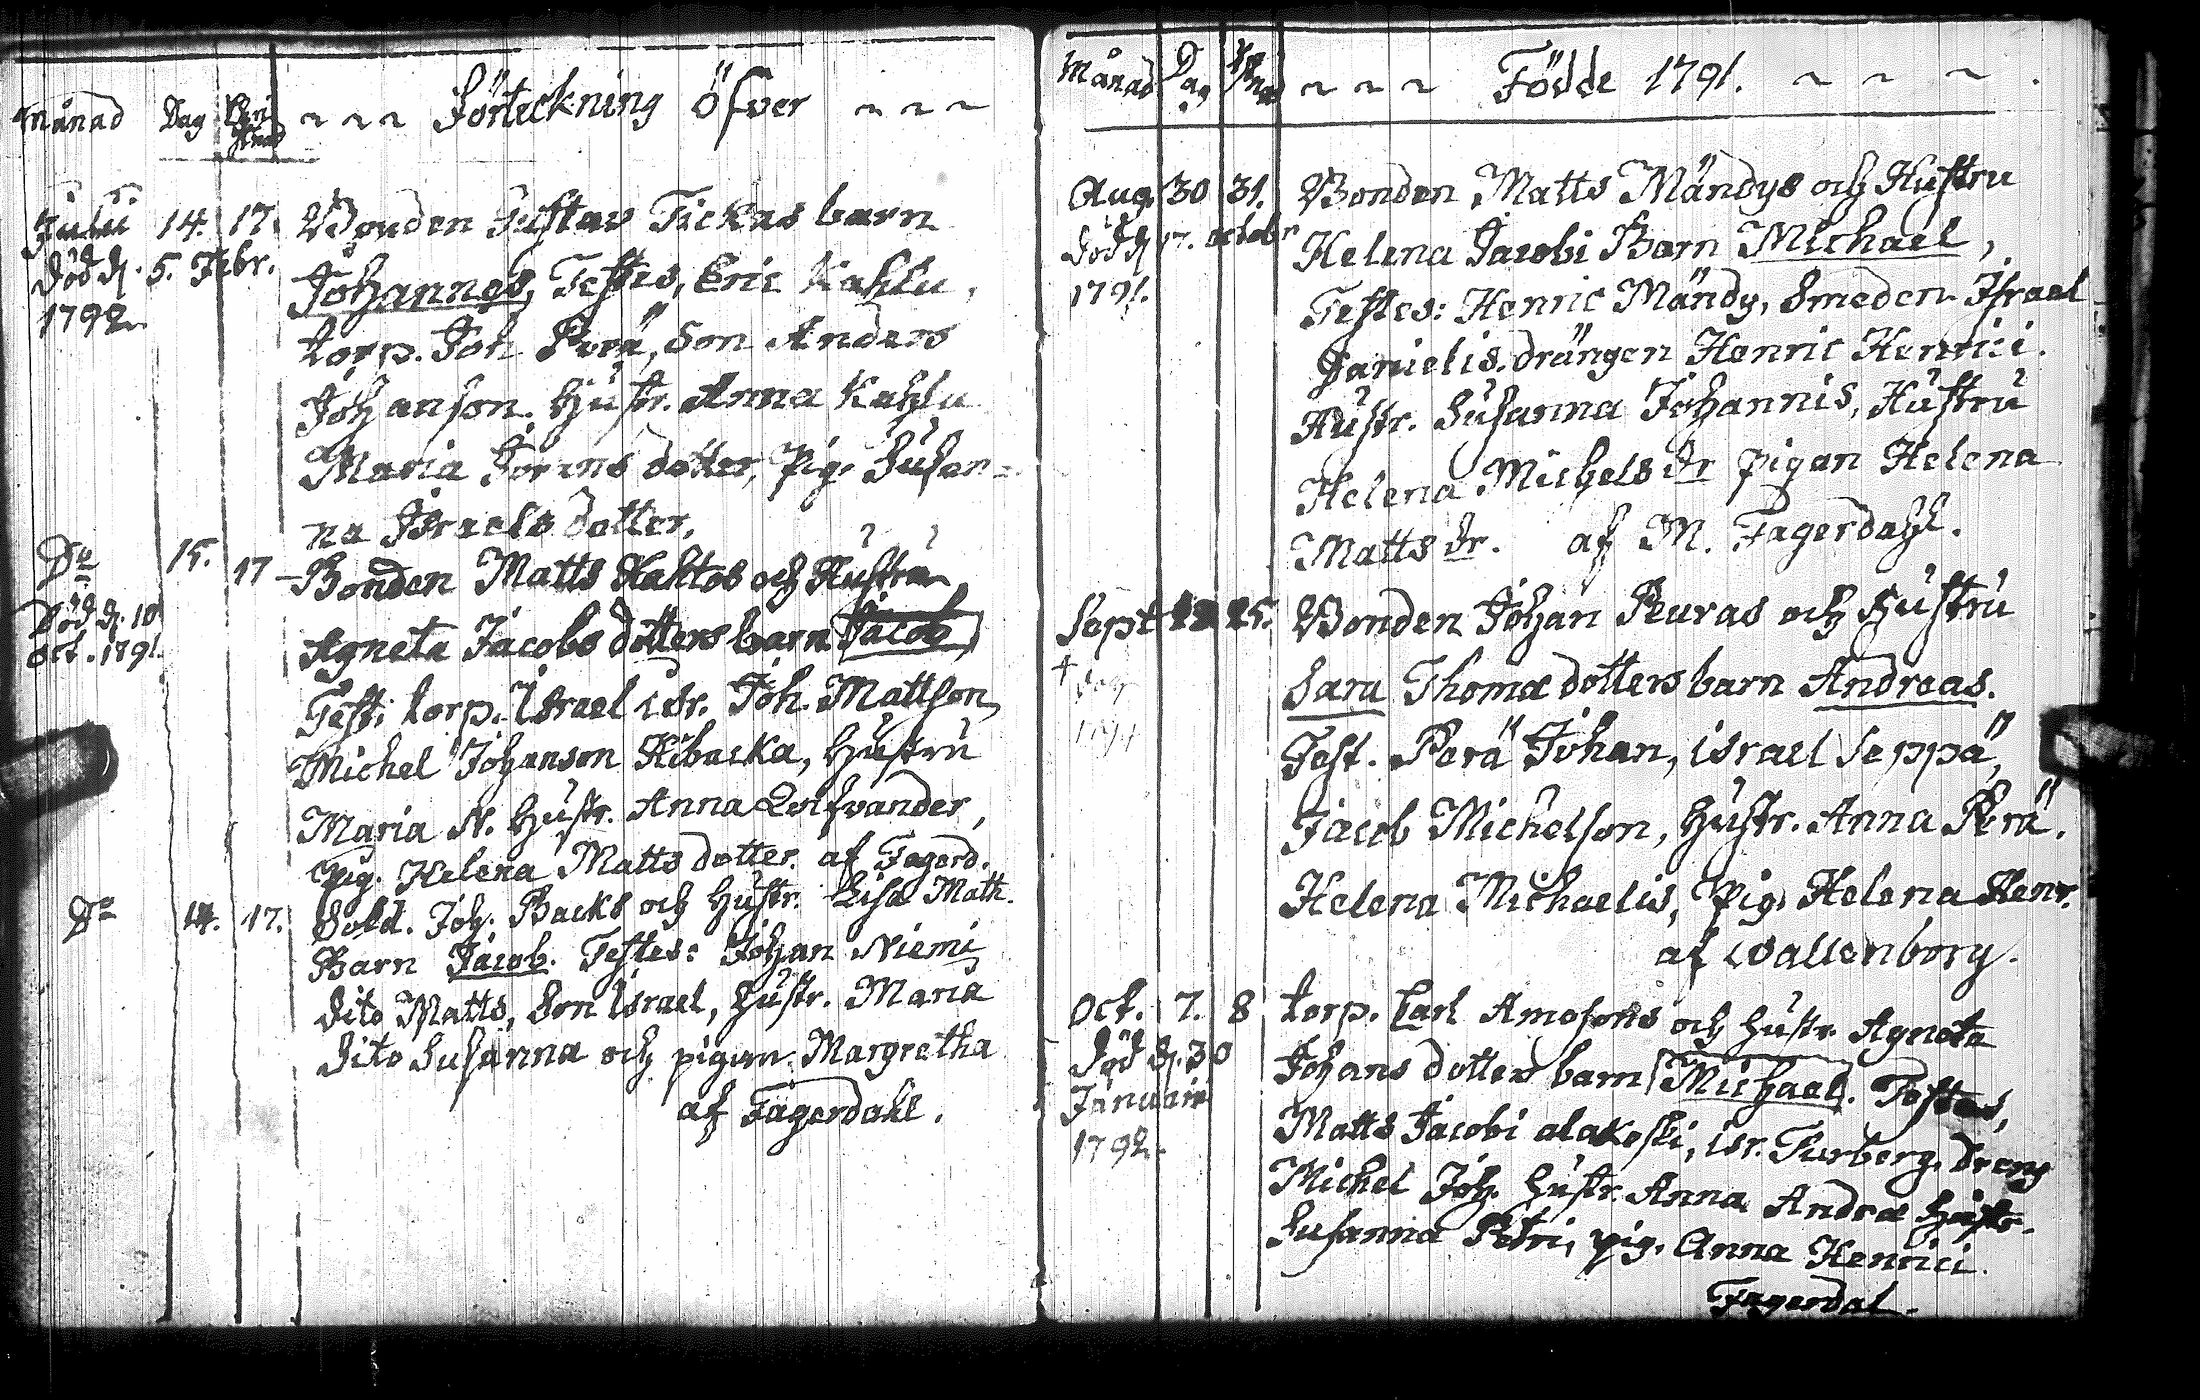 Månad Dag Chri stnad ~ ~ ~ Förteckning öfver ~ ~ ~
Julii 14. 17. Bonden Gustav Fickas barn
död d. 5. Febr. Johannes, Testes, Eric Kahlu,
1792. torp. Joh. Perä, Son Anders
Johanson. Hustr. Anna Kahlu
Maria Jörans dotter, Pig. Susan-
na Israels dotter.
Do 15. 17 Bonden Matts Kahtos och Hustru
Död d. 10 Agneta Jacobs dotters barn Jacob
Oct. 1791. Test: torp. Israel isr. Joh. Mattson,
Michel Johanson Kibacka, Hustru
Maria N. Hustr. Anna Lolfvander,
Pig. Helena Matts dotter. af Fagerd.
Do 14. 17. Sold. Joh. Backs och Hustr. Lisa Math.
Barn Jacob. Testes: Johan Niemi
dito Matts, Son Israel, Hustr. Maria
dito Susanna och pigan Margretha
af Fagerdahl.
Månad Dag ~ ~ ~ Födde 1791. ~ ~ ~
Aug. 30 31. Bonden Matts Mändys och Hustru
död d. 17. octobr Helena Jacobi Barn Michael,
1791. Testes: Henric Mändy, Smeden Israel
Danielis. drängen Henric Henrici.
Hustr. Susanna Johannis, Hustru
Helena Michels dr pigan Helena
Matts dr. af M. Fagerdahl.
Sept 25. Bonden Johan Peuras och Hustru
† Sara Thomæ dotters barn Andreas.
Test. Perä Johan, israel Seppä,
Jacob Michelson, Hustr. Anna Perä.
Helena Michaelis, Pig. Helena Henr.
af Wallenborg.
Oct. 7. 8 torp. Carl Amosons och Hustr. Agneta
död d. 30 Johans dotters barn Michael. Testes,
Januarii Matts Jacobi alakoski, isr. Furberg. dreng
1792. Michel Joh. Hustr. Anna Andræ Hustr.
Susanna Petri, pig. Anna Henrici.
Fagerdal.